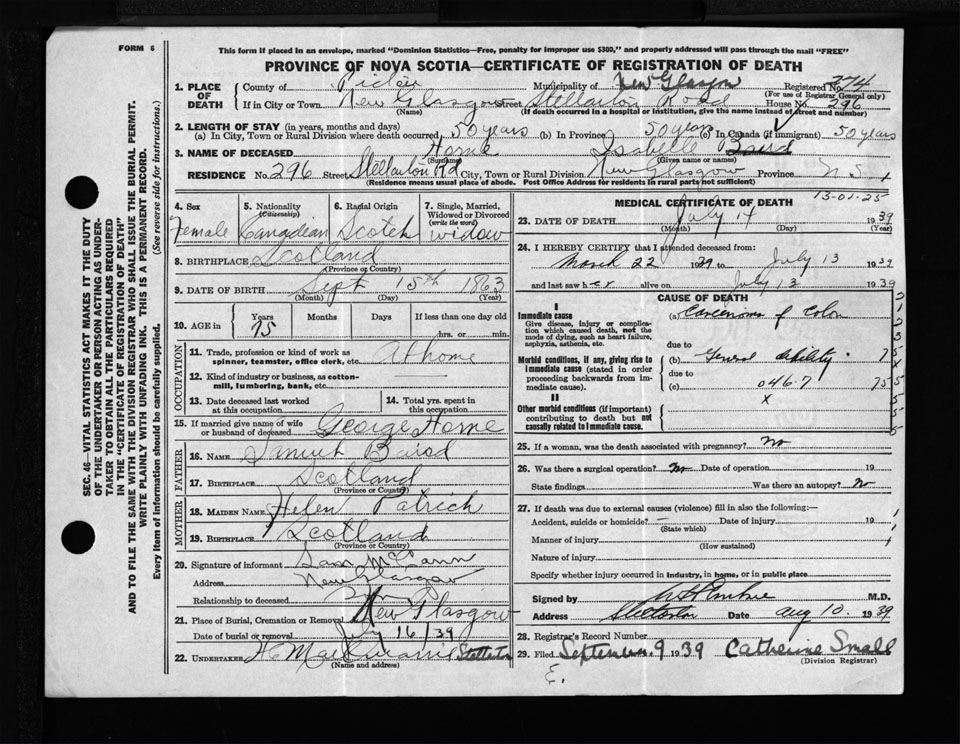 FORM 6
This form if placed in an envelope, marked "Dominion Statistics—Free, penalty for improper use $300," and properly addressed will pass through the mail "FREE"
PROVINCE OF NOVA SCOTIA—CERTIFICATE OF REGISTRATION OF DEATH
SEC. 46—VITAL STATISTICS ACT MAKES IT THE DUTY
OF THE UNDERTAKER OR PERSON ACTING AS UNDER-
TAKER TO OBTAIN ALL THE PARTICULARS REQUIRED
IN THE "CERTIFICATE OF REGISTRATION OF DEATH"
AND TO FILE THE SAME WITH THE DIVISION REGISTRAR WHO SHALL ISSUE THE BURIAL PERMIT.
WRITE PLAINLY WITH UNFADING INK. THIS IS A PERMANENT RECORD.
Every item of information should be carefully supplied. (See reverse side for instructions.)
1. PLACE OF DEATH
County of Pictou Municipality of New Glasgow Registered No. 274
(For use of Registrar General only)
If in City or Town New Glasgow Street Stellarton Road House No. 296
(Name) (If death occurred in a hospital or institution, give the name instead of street and number)
2. LENGTH OF STAY (in years, months and days)
(a) In City, Town or Rural Division where death occurred, 50 years (b) In Province 50 years (c) In Canada (if immigrant) 50 years
3. NAME OF DECEASED Horne Isabelle Baird
(Surname) (Given name or names)
RESIDENCE No. 296 Street Stellarton Rd City, Town or Rural Division New Glasgow Province N.S.
(Residence means usual place of abode. Post Office Address for residents in rural parts not sufficient)
4. Sex 5. Nationality (Citizenship) 6. Racial Origin 7. Single, Married, Widowed or Divorced (write the word)
Female Canadian Scotch widow
8. BIRTHPLACE Scotland
(Province or Country)
9. DATE OF BIRTH Sept 15th 1863
(Month) (Day) (Year)
10. AGE in Years Months Days If less than one day old
75 hrs. or min.
OCCUPATION
11. Trade, profession or kind of work as spinner, teamster, office clerk, etc. At home
12. Kind of industry or business, as cotton-mill, lumbering, bank, etc.
13. Date deceased last worked at this occupation 14. Total yrs. spent in this occupation
15. If married give name of wife or husband of deceased George Horne
FATHER
16. NAME Baird
17. BIRTHPLACE Scotland
(Province or Country)
MOTHER
18. MAIDEN NAME Helen Patrick
19. BIRTHPLACE Scotland
(Province or Country)
20. Signature of informant
Address New Glasgow
Relationship to deceased
21. Place of Burial, Cremation or Removal New Glasgow
Date of burial or removal July 16/39
22. UNDERTAKER Stellarton
(Name and address)
MEDICAL CERTIFICATE OF DEATH 13-01-25
23. DATE OF DEATH July 14 1939
(Month) (Day) (Year)
24. I HEREBY CERTIFY that I attended deceased from:
March 22 1939 to July 13 1939
and last saw her alive on July 13 1939
CAUSE OF DEATH
I
Immediate cause
Give disease, injury or complication which caused death, not the mode of dying, such as heart failure, asphyxia, asthenia, etc.
(a) Carcinoma of Colon
due to
Morbid conditions, if any, giving rise to immediate cause (stated in order proceeding backwards from immediate cause).
(b) General debility
due to
(c) 046.7
II
Other morbid conditions (if important) contributing to death but not causally related to immediate cause.
x
25. If a woman, was the death associated with pregnancy? No
26. Was there a surgical operation? No Date of operation 19
State findings Was there an autopsy? No
27. If death was due to external causes (violence) fill in also the following:—
Accident, suicide or homicide? — Date of injury 19
(State which)
Manner of injury
(How sustained)
Nature of injury
Specify whether injury occurred in industry, in home, or in public place
Signed by M.D.
Address Stellarton Date Aug 10 1939
28. Registrar's Record Number
29. Filed September 9 1939 Catherine Small
(Division Registrar)
E.